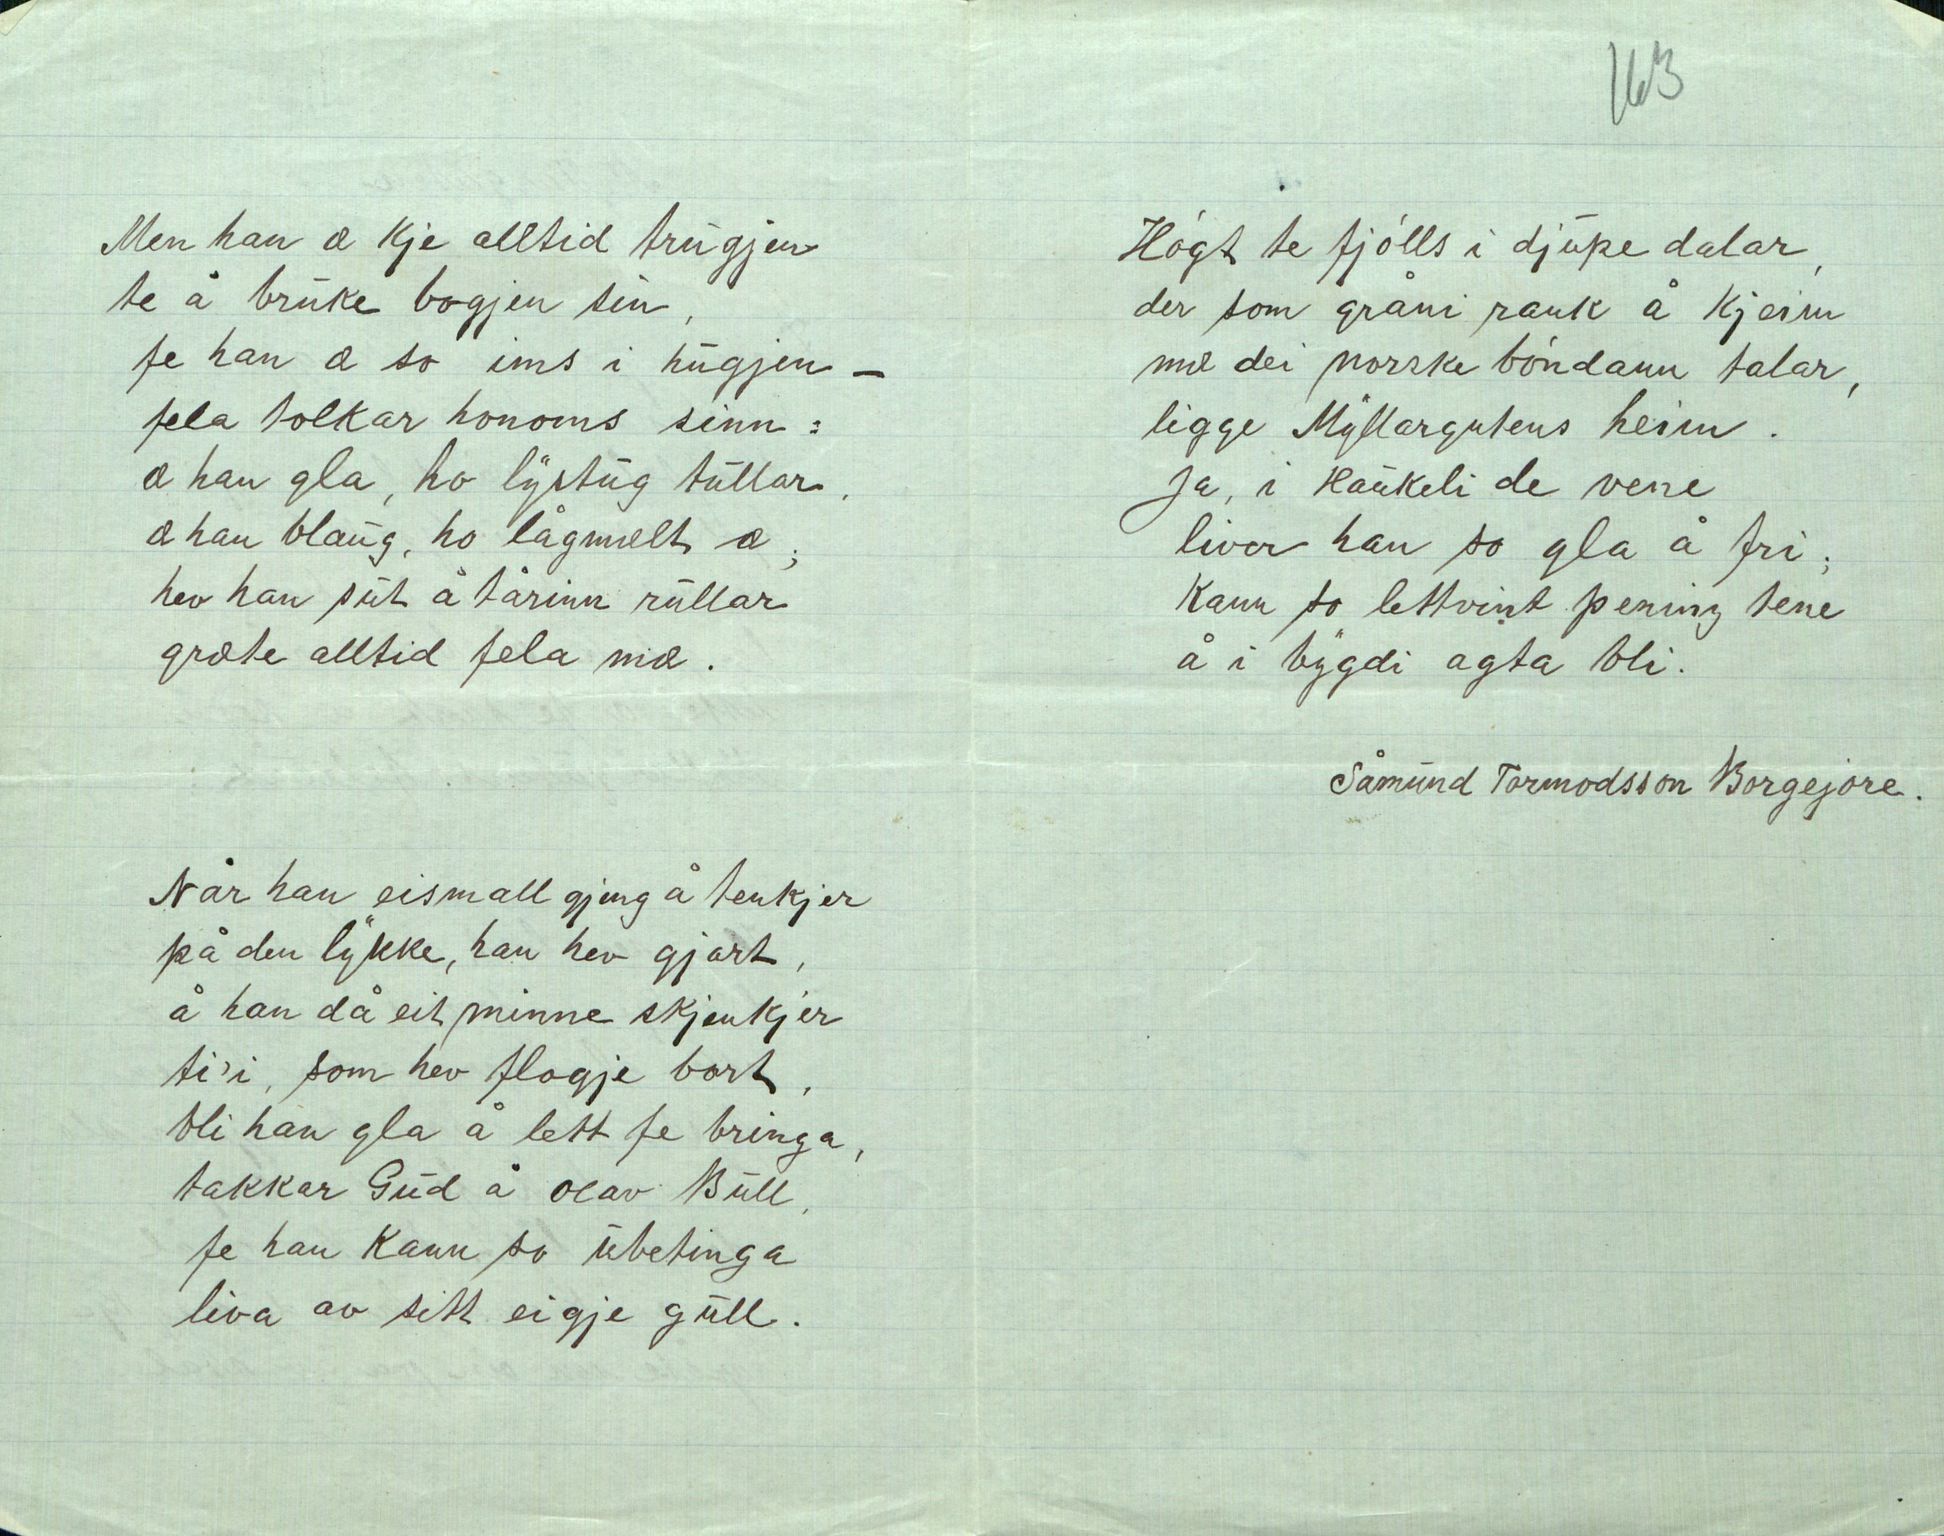 Men han æ kje alltid trügjen
te å brüke bogjen sin,
fe han æ so ims i hügjen –
fela tolkar honoms sinn:
æ han gla, ho lÿstüg tüllar,
æ han blaüg, ho lågmælt æ;
hev han süt å tårinn rüllar
græte alltid fela mæ.

Når han eismall gjeng å tenkjer
på den lÿkke, han hev gjort,
å han då eit minne skjenkjer
ti'i, som hev flogje bort,
bli han gla å lett fe bringa,
takkar Güd å Olav Büll,
fe han kann so übetinga
liva av sitt eigje güll.

163

Högt te fjölls i djüpe dalar,
der som gråni rank å kjeim
mæ dei norske böndann talar,
ligge Mÿllargutens heim.
Ja, i Haükeli de vene
liver han so gla å fri;
kann so lettvint pening tene
å i bÿgdi agta bli.

Såmünd Tormodsson Borgejore.